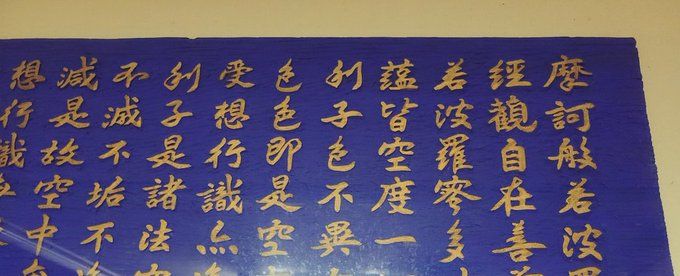 摩訶般若波羅
經觀自在菩
若波羅蜜多
蘊皆空度一
利子色不異
色色即是空
受想行識亦
利子是諸法空
不滅不垢不
減是故空中
想行識